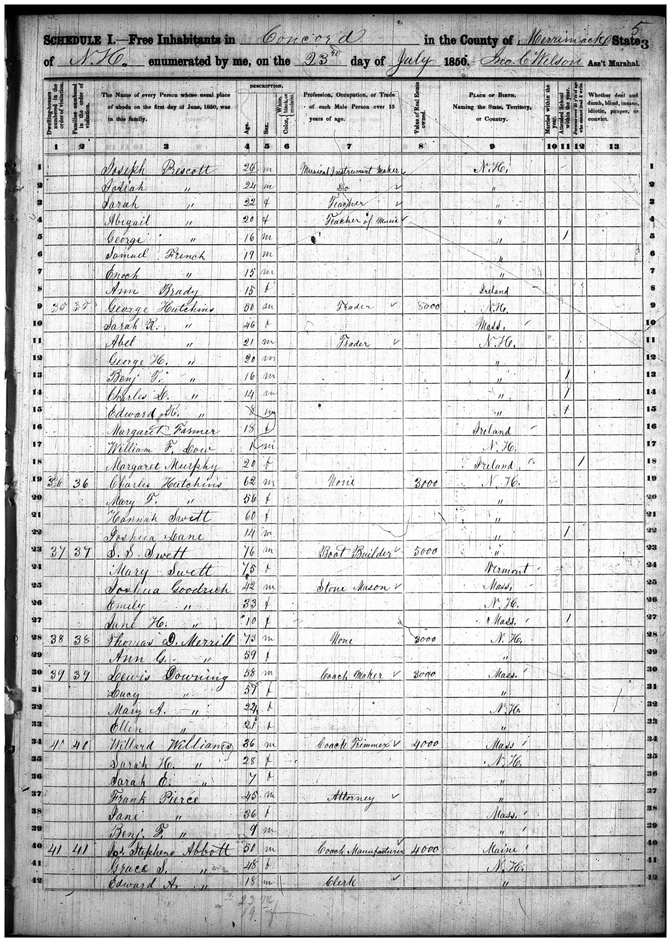 5
SCHEDULE I.—Free Inhabitants in Concord in the County of Merrimack State 3
of N.H. enumerated by me, on the 23rd day of July 1850. Geo C Wilson Ass't Marshal.
DESCRIPTION.
Dwelling-houses numbered in the order of visitation. Families numbered in the order of visitation. The Name of every Person whose usual place of abode on the first day of June, 1850, was in this family. Age. Sex. Color, White, black, or mulatto. Profession, Occupation, or Trade of each Male Person over 15 years of age. Value of Real Estate owned. PLACE OF BIRTH. Naming the State, Territory, or Country. Married within the year. Attended School within the year. Whether deaf and dumb, blind, insane, idiotic, pauper, or convict.
1 2 3 4 5 6 7 8 9 10 11 12 13
1 Joseph Prescott 26 m Musical Instrument Maker N.H. 1
2 Josiah " 24 m Do " 2
3 Sarah " 22 f Teacher " 3
4 Abigail " 20 f Teacher of Music " 4
5 George " 16 m " 1 5
6 Samuel French 19 m " 6
7 Enoch " 15 m " 7
8 Ann Brady 15 f Ireland 8
9 35 35 George Hutchins 50 m Trader 8000 N.H. 9
10 Sarah R. " 46 f Mass. 10
11 Abel " 21 m Trader N.H. 11
12 George H. " 20 m " 12
13 Benj F. " 16 m " 1 13
14 Charles " 14 m " 1 14
15 Edward " 8 m " 1 15
16 Margaret Farmer 18 f Ireland 16
17 William F. m N.H. 17
18 Margaret Murphy 20 f Ireland 1 18
19 36 36 Charles Hutchins 62 m None 3000 N.H. 19
20 Mary " 56 f " 20
21 Hannah Swett 60 f " 21
22 Joshua Lane 14 m " 1 22
23 37 37 Swett 76 m Boat Builder 5000 " 23
24 Mary Swett 75 f Vermont 24
25 Joshua Goodrich 42 m Stone Mason Mass. 25
26 Emily " 33 f N.H. 26
27 Jane H. " 10 f Mass. 1 27
28 38 38 Thomas D. Merrill 73 m None 3000 N.H. 28
29 Ann G. " 59 f " 29
30 39 39 Lewis Downing 58 m Coach Maker 3000 Mass. 30
31 Lucy " 57 f " 31
32 Mary A. " 24 f N.H. 32
33 Ellen " 21 f " 33
34 40 40 Willard Williams 36 m Coach Trimmer 4000 Mass 34
35 Sarah H. " 28 f N.H. 35
36 Sarah E. " 7 f " 36
37 Frank Pierce 45 m Attorney " 37
38 Jane " 36 f Mass. 38
39 Benj. F. " 9 m " 39
40 41 41 Jos Stephens Abbott 50 m Coach Manufacturer 4000 Maine 40
41 Grace S. " 48 f N.H. 41
42 Edward A. " 18 m Clerk " 42